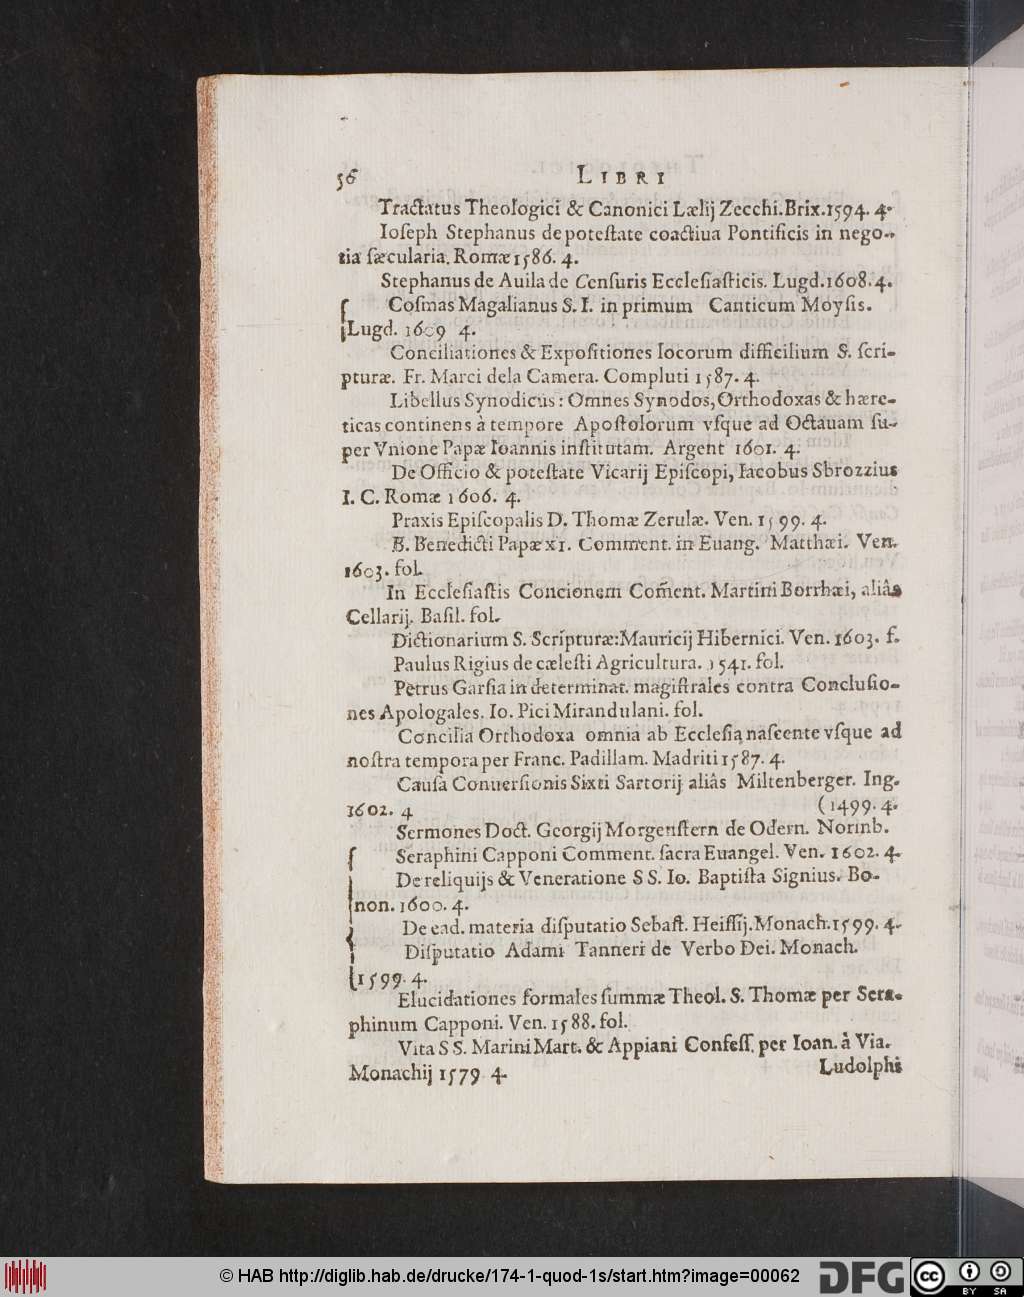 56 LIBRI
Tractatus Theologici & Canonici Lælij Zecchi. Brix. 1594. 4.
Ioſeph Stephanus de poteſtate coactiua Pontificis in nego-
tia ſæcularia. Romæ 1586. 4.
Stephanus de Auila de Cenſuris Eccleſiaſticis. Lugd. 1608. 4.
{ Coſmas Magalianus S. I. in primum Canticum Moyſis.
Lugd. 1609 4.
Conciliationes & Expoſitiones locorum difficilium S. ſcri-
pturæ. Fr. Marci dela Camera. Compluti 1587. 4.
Libellus Synodicus: Omnes Synodos, Orthodoxas & hære-
ticas continens à tempore Apoſtolorum vſque ad Octauam ſu-
per Vnione Papæ Ioannis inſtitutam. Argent 1601. 4.
De Officio & poteſtate Vicarij Epiſcopi, Iacobus Sbrozzius
I. C. Romæ 1606. 4.
Praxis Epiſcopalis D. Thomæ Zerulæ. Ven. 1599. 4.
B. Benedicti Papæ XI. Comment. in Euang. Matthæi. Ven.
1603. fol.
In Eccleſiaſtis Concionem Com̃ent. Martini Borrhæi, aliâs
Cellarij. Baſil. fol.
Dictionarium S. Scripturæ: Mauricij Hibernici. Ven. 1603. f.
Paulus Rigius de cæleſti Agricultura. 1541. fol.
Petrus Garſia in determinat. magiſtrales contra Concluſio-
nes Apologales. Io. Pici Mirandulani. fol.
Concilia Orthodoxa omnia ab Eccleſia naſcente vſque ad
noſtra tempora per Franc. Padillam. Madriti 1587. 4.
Cauſa Conuerſionis Sixti Sartorij aliâs Miltenberger. Ing.
1602. 4 (1499. 4.
Sermones Doct. Georgij Morgenſtern de Odern. Norinb.
{ Seraphini Capponi Comment. ſacra Euangel. Ven. 1602. 4.
De reliquijs & Veneratione SS. Io. Baptiſta Signius. Bo-
non. 1600. 4.
De ead. materia diſputatio Sebaſt. Heiſſij. Monach. 1599. 4.
Diſputatio Adami Tanneri de Verbo Dei. Monach.
1599. 4.
Elucidationes formales ſummæ Theol. S. Thomæ per Sera-
phinum Capponi. Ven. 1588. fol.
Vita SS. Marini Mart. & Appiani Confeſſ. per Ioan. à Via.
Monachij 1579 4. Ludolphi
© HAB http://diglib.hab.de/drucke/174-1-quod-1s/start.htm?image=00062 DFG CC BY SA